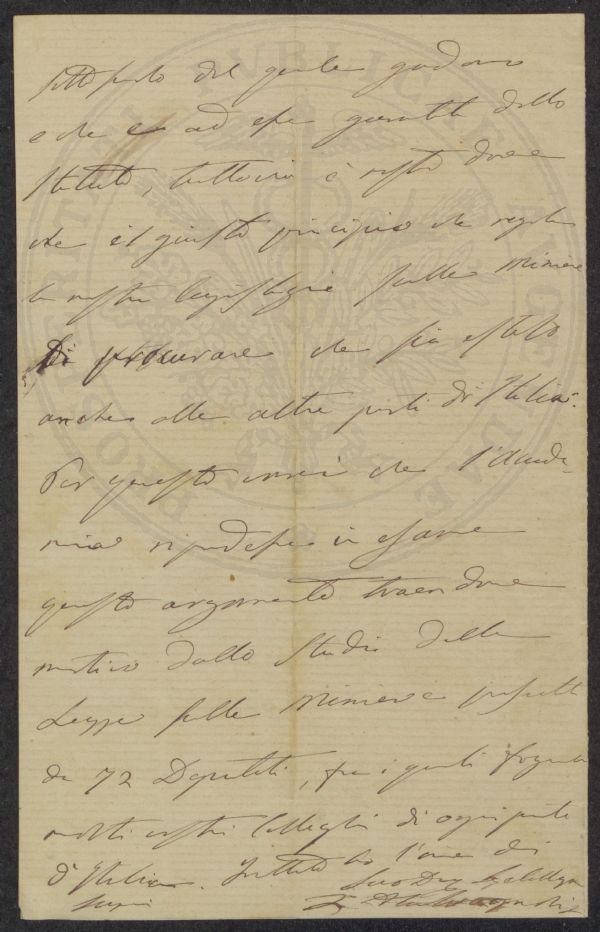 del quale godono
e che è ad essi garantito dallo
Statuto, tuttavia è nostro dovere
che il giusto principio che regola
la nostra legislazione sulle Miniere
di procurare che sia esteso
anche alle altre parti di Italia.
Per questo vorrei che l'Accade-
mia riprendesse in esame
questo argomento traendone
motivo dallo studio della
Legge sulle Miniere
da 72 Deputati, fra i quali
molti nostri Colleghi di ogni parte
d'Italia. Intanto ho l'onore di